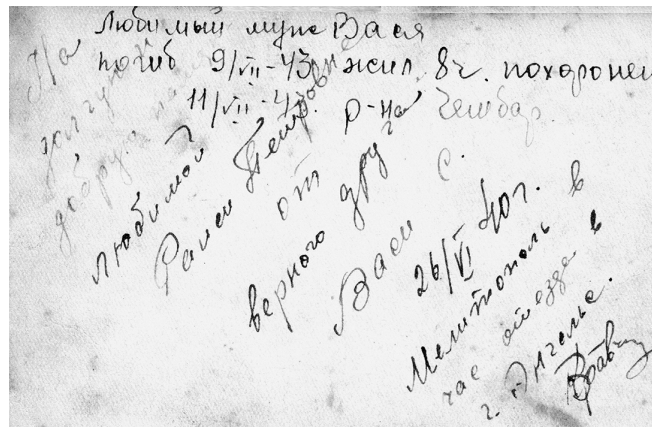 Любимый муж Вася
погиб 9/VII-43 жил 8ч. похоронен
11/VII-43. р-на Чембар.
На долгую и
добрую память
любимой
Раисе Петровне
от
верного друга
Васи С.
26/VI 40г.
Мелитополь в
час отъезда в
г. Энгельс.